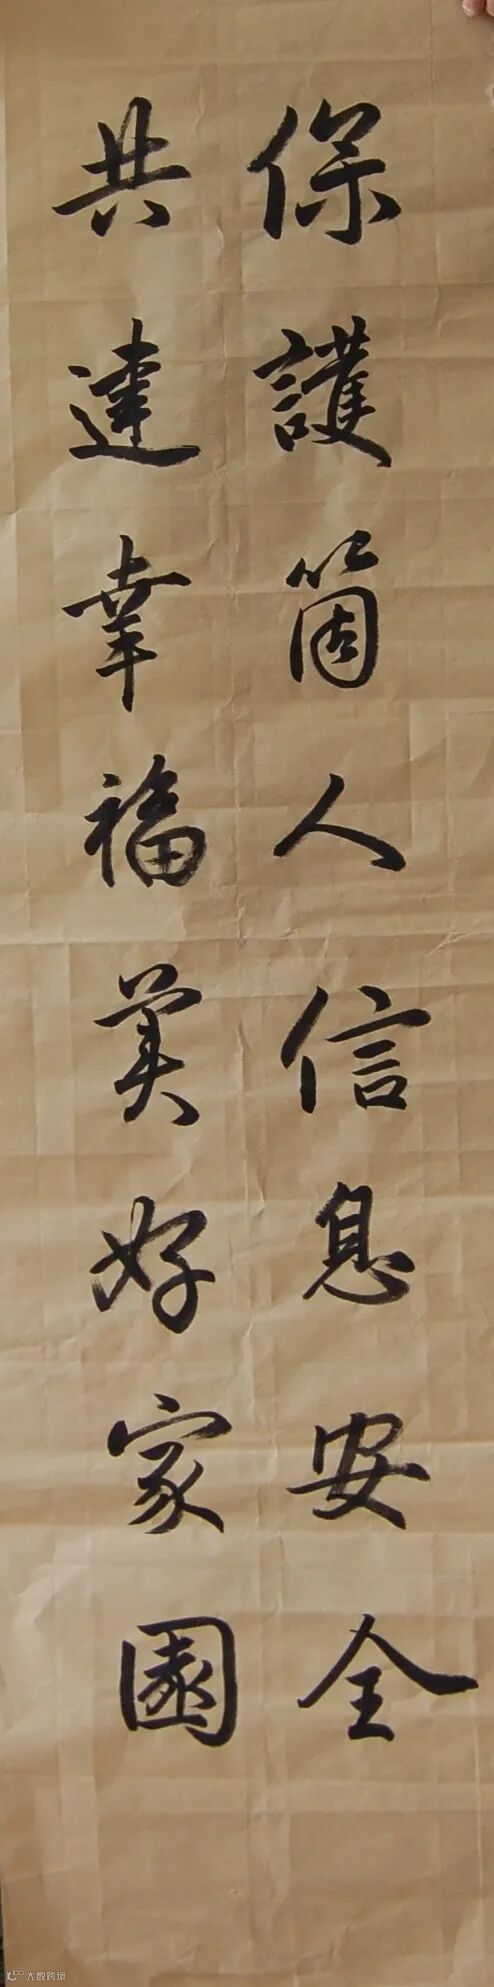 保護箇人信息安全
共建幸福美好家園
大数跨境